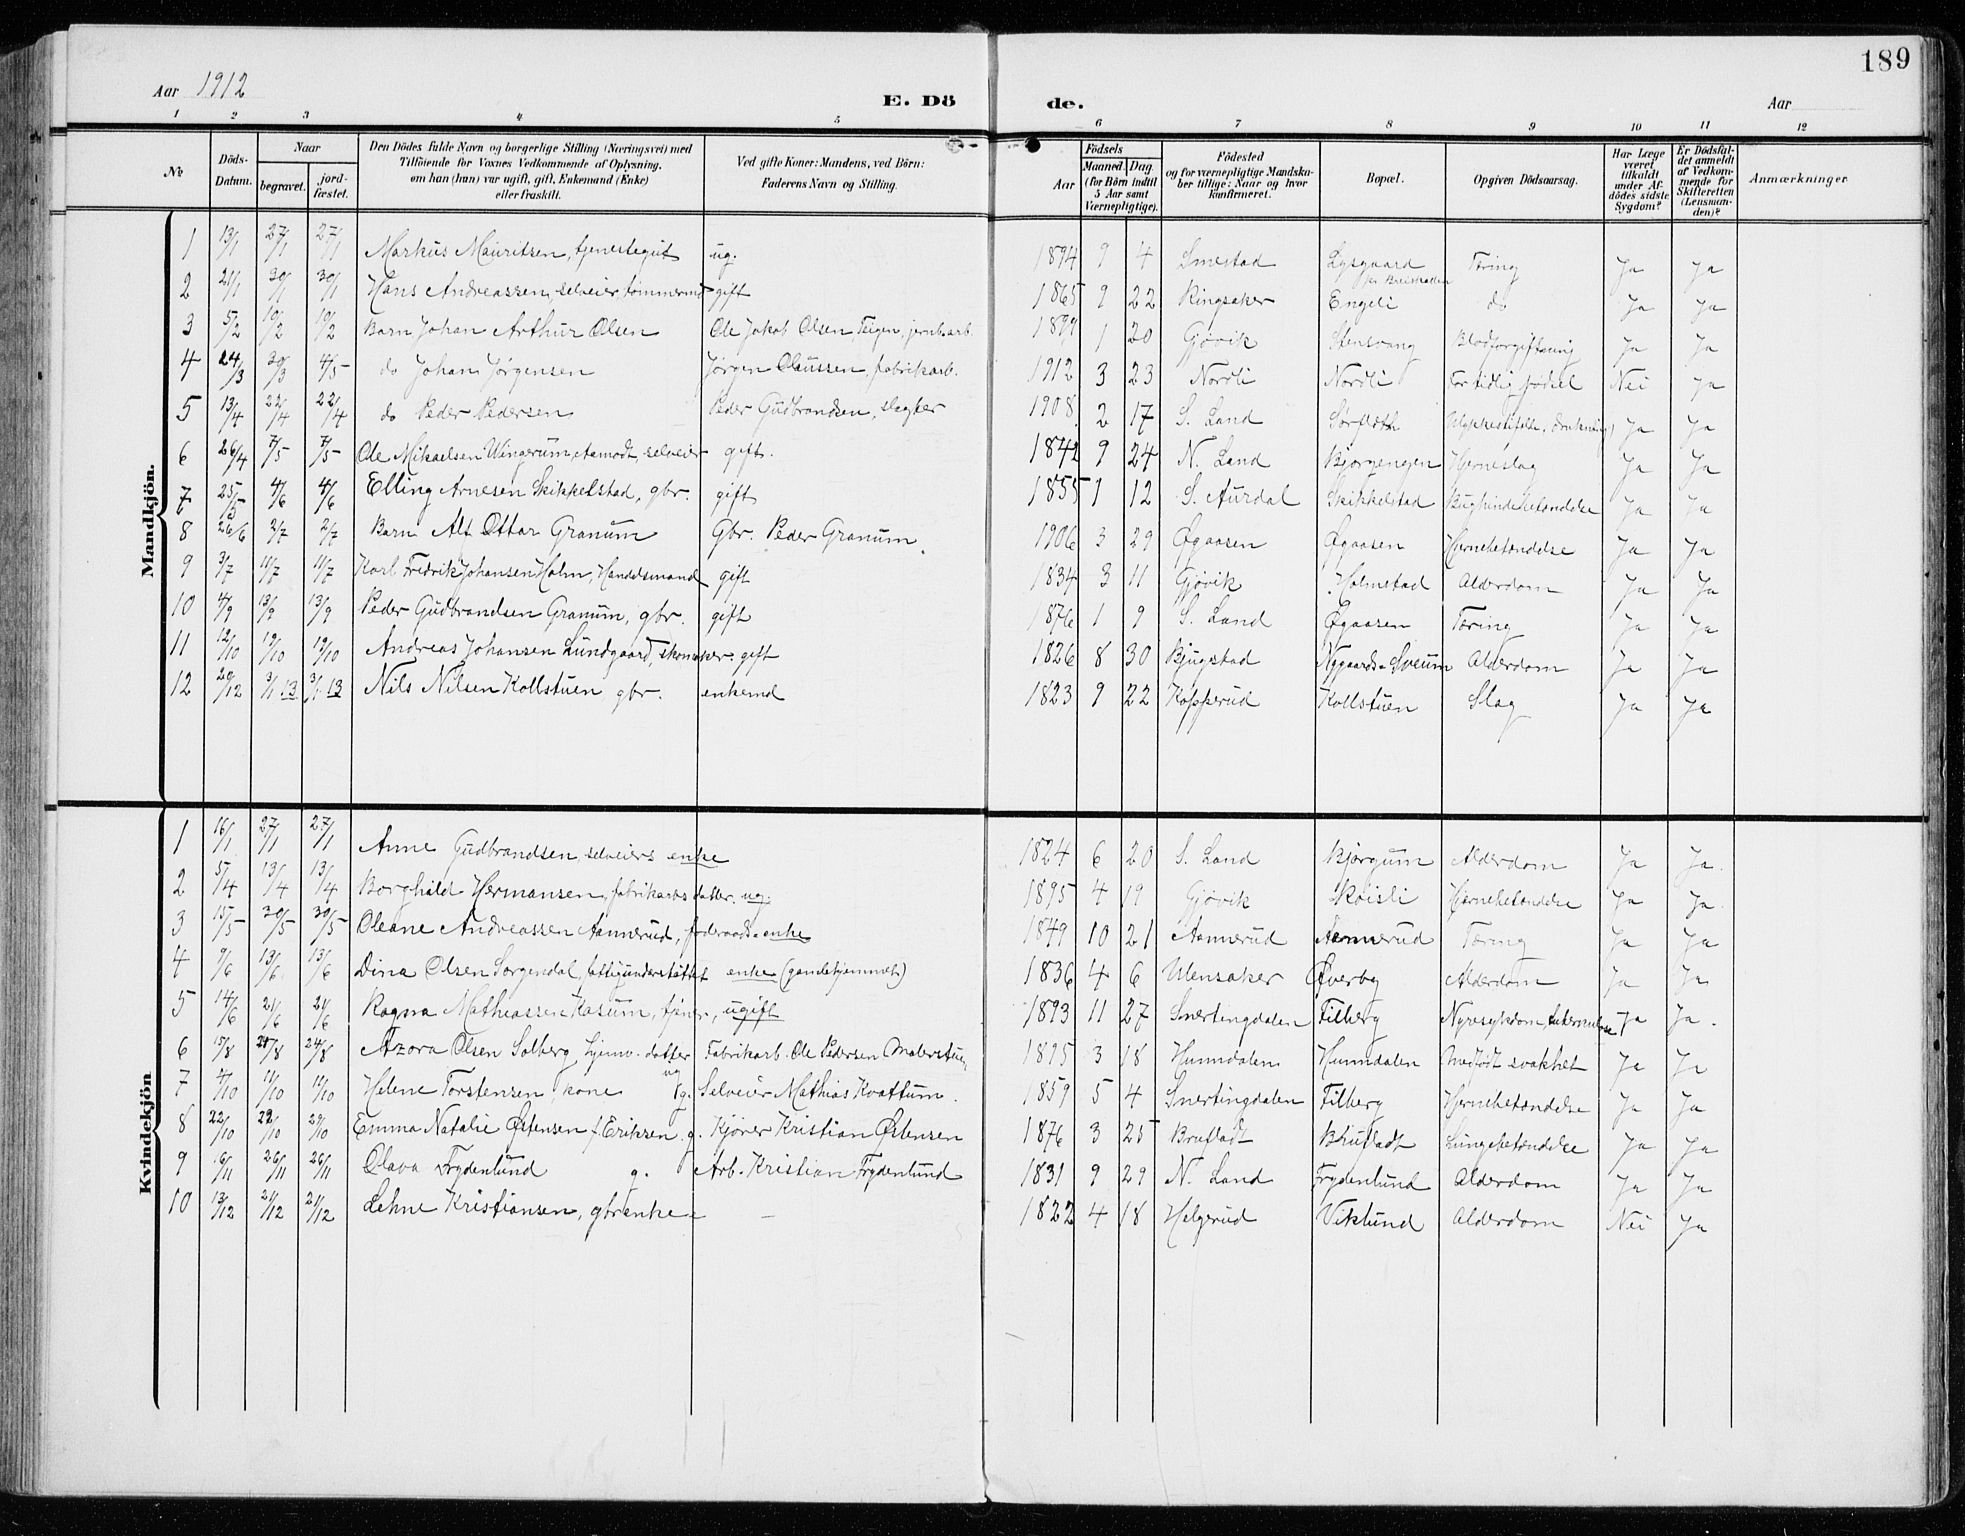 189
Aar 1912
E. Dö de.
Aar
1 2 3 4 5 6 7 8 9 10 11 12
No
Döds-Datum.
Naar
begravet. jord-fæstet.
Den Dödes fulde Navn og borgerlige Stilling (Næringsvei) med
Tilföiende for Voxnes Vedkommende af Oplysning,
om han (hun) var ugift, gift, Enkemand (Enke)
eller fraskilt.
Ved gifte Koner: Mandens, ved Börn:
Faderens Navn og Stilling.
Födsels
Aar Maaned Dag
(for Börn indtil
5 Aar samt
Værnepligtige).
Födested
og for værnepligtige Mandska-
ber tillige: Naar og hvor
konfirmeret.
Bopæl.
Opgiven Dödsaarsag.
Har Læge
været
tilkaldt
under Af-
dödes sidste
Sygdom?
Er Dödsfal-
det anmeldt
af Vedkom-
mende for
Skifteretten
(Lensman-
den)?
Anmærkninger
Mandkjön.
1 13/1 27/1 27/1 Markus Mauritsen, tjenestegut ug. 1894 9 4 Smestad Lysgaard Tæring Ja Ja
2 21/1 30/1 30/1 Hans Andreassen, selveier, tømmermd gift 1865 9 22 Ringsaker Engeli do Ja Ja
3 5/2 10/2 10/2 Barn Johan Arthur Olsen Ole Jakob Olsen Teigen, jernb.arb. 1899 1 20 Gjøvik Stensvang Blodforgiftning Ja Ja
4 24/3 30/3 4/5 do Johan Jørgensen Jørgen Claussen, fabrikarb. 1912 3 23 Nordli Nordli For tidlig fødsel Nei Ja
5 13/4 22/4 22/4 do Peder Pedersen Peder Gudbrandsen, slagter 1908 2 17 S. Land Sørfloth Ulykkestilfelde, drukning) Ja Ja
6 26/4 7/5 7/5 Ole Mikaelsen Vingerum, Aamodt, selveier gift. 1842 9 24 N. Land Bjørgengen Hjerneslag Ja Ja
7 25/5 4/6 4/6 Elling Arnesen Skikkelstad, gbr. gift 1855 1 12 S. Aurdal Skikkelstad Bughindebetændelse Ja Ja
8 26/6 2/7 2/7 Barn Alf Ottar Granum Gbr. Peder Granum. 1906 3 29 Øgaasen Øgaasen Hjernebetændelse Ja Ja
9 3/7 11/7 11/7 Karl Fredrik Johansen Holm, Handelsmand gift 1834 3 11 Gjøvik Holmstad Alderdom Ja Ja
10 4/9 13/9 13/9 Peder Gudbrandsen Granum, gbr. gift 1876 1 9 S. Land Øgaasen Tæring Ja Ja
11 12/10 19/10 19/10 Andreas Johansen Lundgaard, skomaker. gift 1826 8 30 Bjugstad Nygaards-Sveum Alderdom Ja Ja
12 20/12 3/1 13 3/1 13 Nils Nilsen Kollstuen, gbr. enkemd 1823 9 22 Kopperud Kollstuen Slag Ja Ja
Kvindekjön
1 16/1 27/1 27/1 Anne Gudbrandsen, selveiers enke 1824 6 20 S. Land Bjørgum Alderdom Ja Ja.
2 5/4 13/4 13/4 Borghild Hermansen, fabrikarbs datter. ug. 1895 4 19 Gjøvik Skoisli Hjernebetændelse Ja Ja.
3 15/5 30/5 30/5 Oleane Andreassen Aannerud, føderaads-enke 1849 10 21 Aannerud Aannerud Tæring Ja Ja
4 9/6 13/6 13/6 Dina Olsen Sorgendal, fattigunderstøttet enke (gamlehjemmets) 1836 4 6 Ulensaker Øverby Alderdom Ja Ja
5 14/6 21/6 21/6 Ragna Mathiassen Kasum, tjener., ugift 1893 11 27 Snertingdalen Filberg Nyresykdom, Ja Ja.
6 15/8 24/8 24/8 Azora Olsen Solberg hjemv. datter ug Fabrikarb. Ole Pedersen Malerstuen 1895 3 18 Hunndalen Hunndalen Medfødt svakhet Ja Ja
7 4/10 11/10 11/10 Helene Torstensen, kone g. Selveier Mathias Kvattum. 1859 5 4 Snertingdalen Filberg Hjernebetændelse Ja Ja
8 22/10 29/10 29/10 Emma Natalie Østensen f. Eriksen g. Kjører Kristian Østensen 1876 3 25 Brufladt Brufladt Lungebetændelse Ja Ja
9 16/11 26/11 26/11 Olava Frydenlund g. Arb. Kristian Frydenlund 1831 9 29 N. Land Frydenlund Alderdom Ja Ja
10 13/12 21/12 21/12 Lehne Kristiansen, gbrenke — 1822 4 18 Helgerud Viklund Alderdom Nei Ja